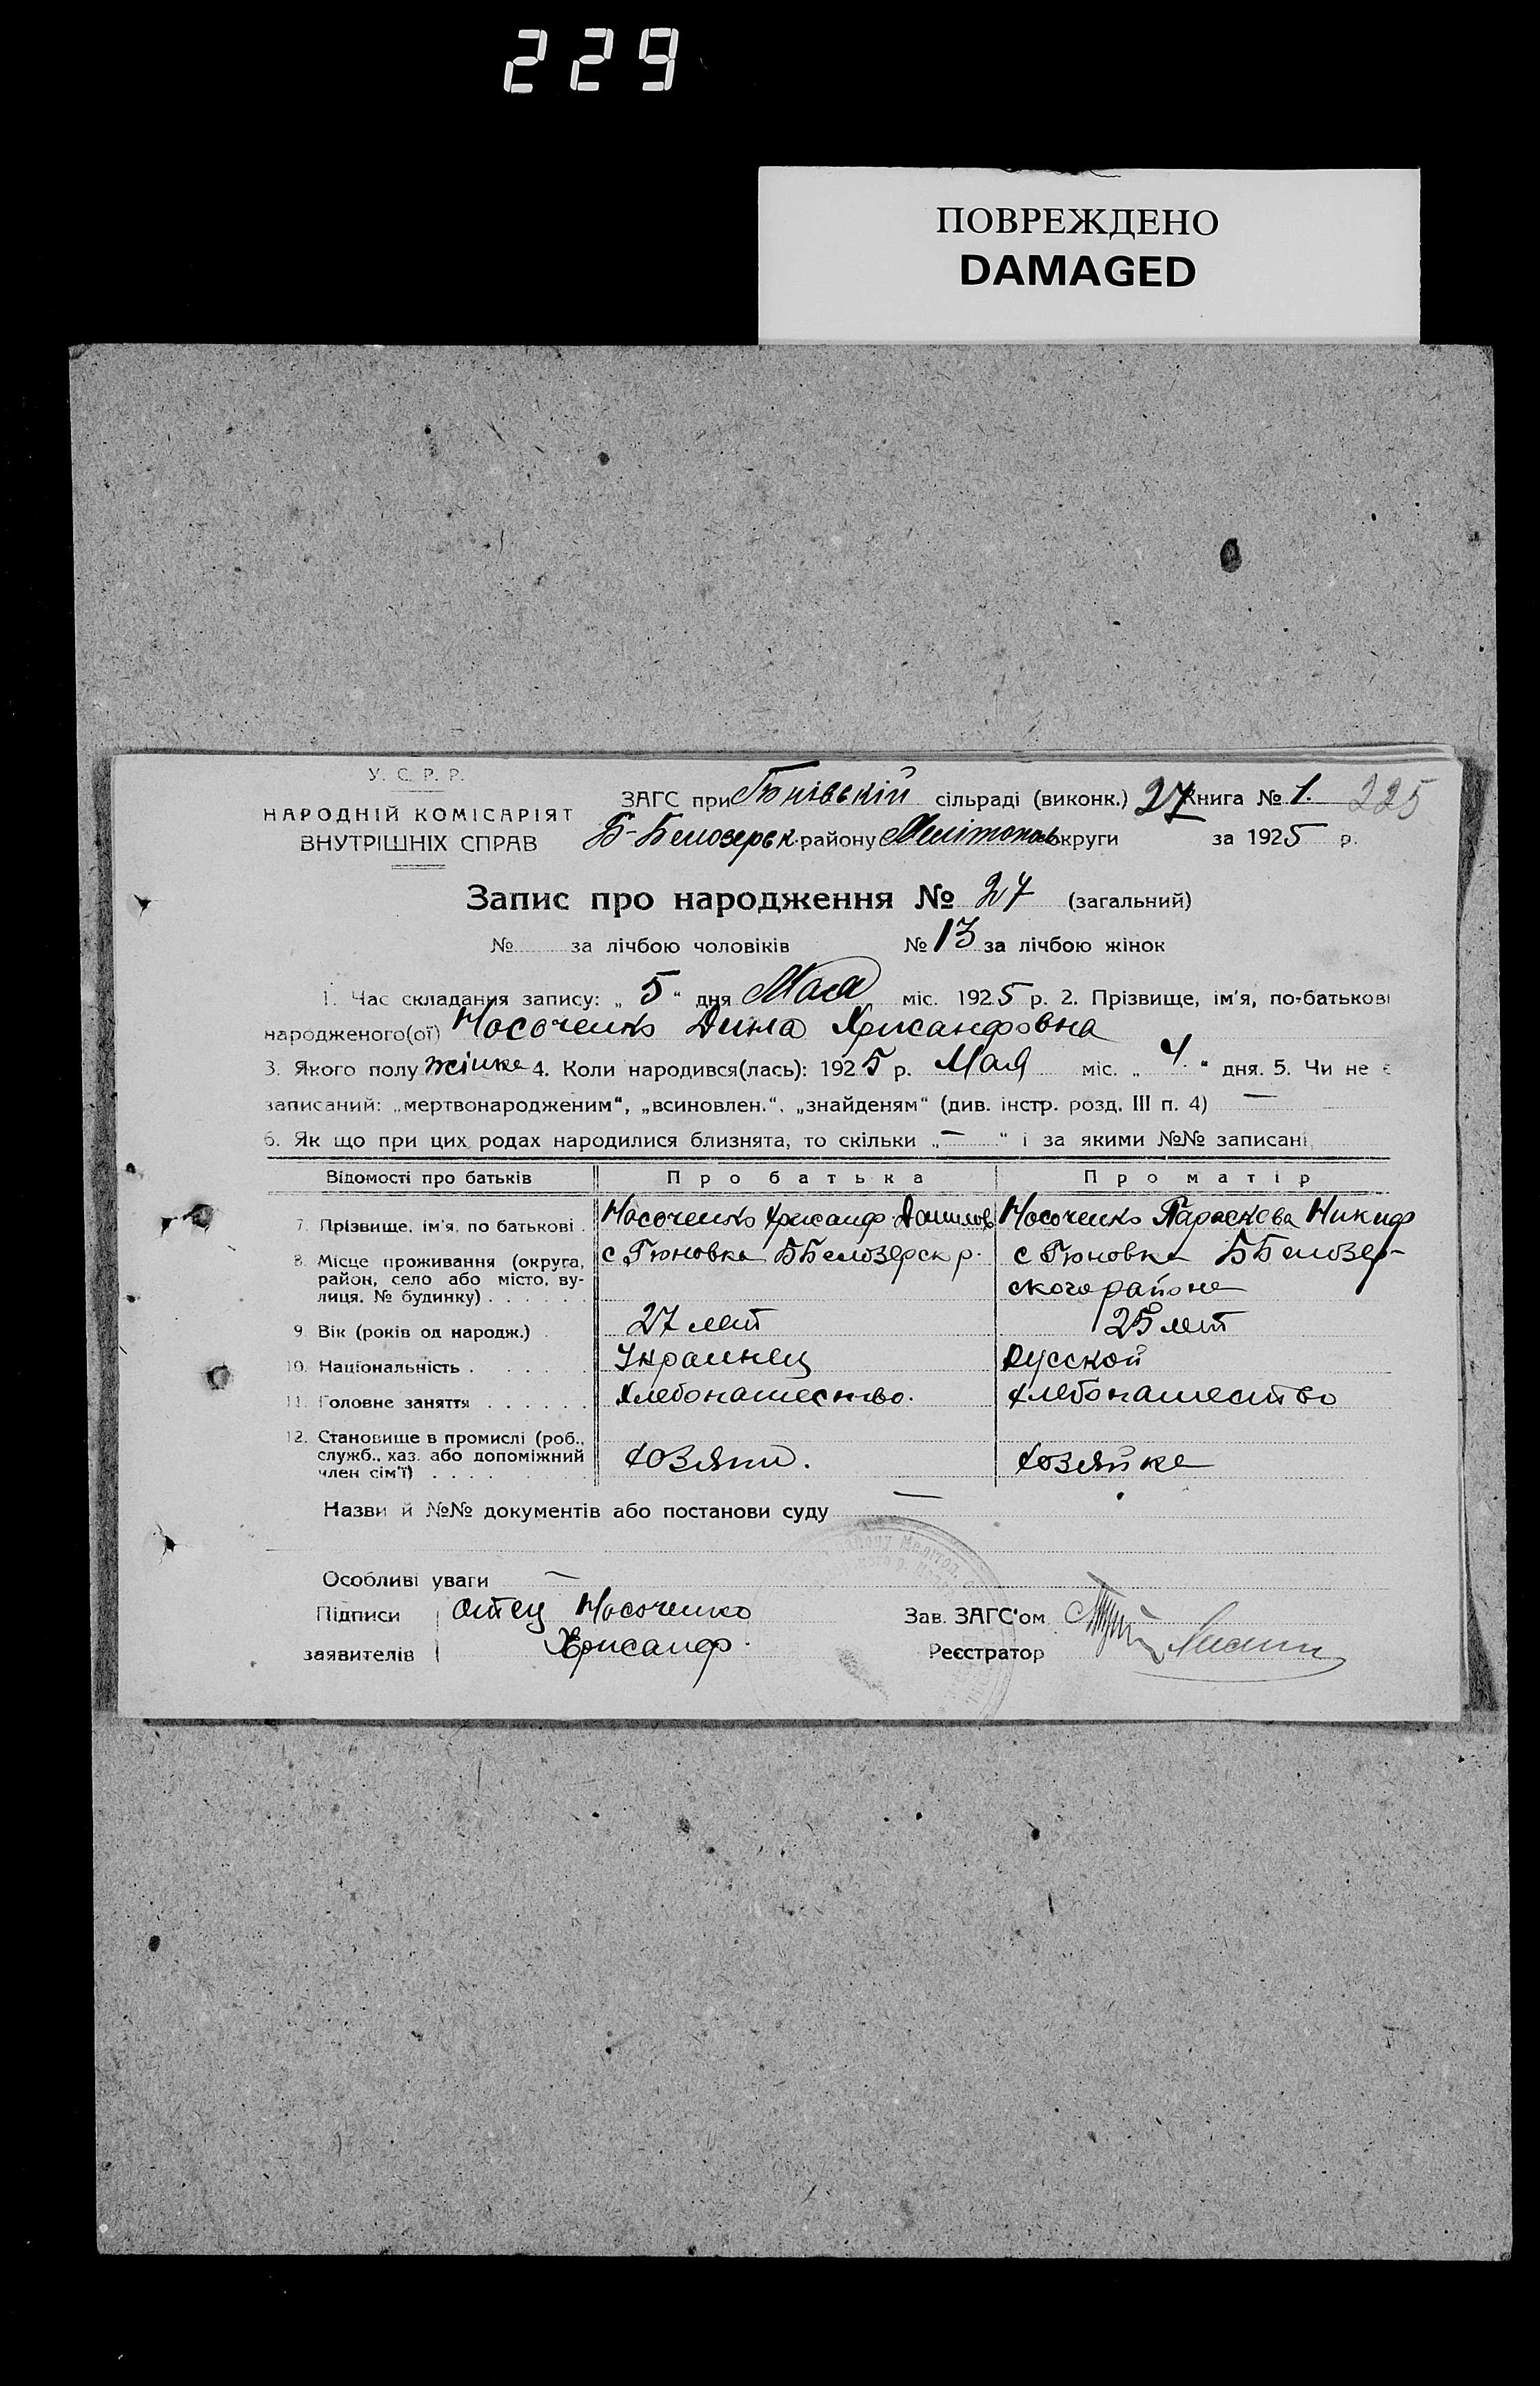 229
ПОВРЕЖДЕНО
DAMAGED
У. С. Р. Р.
НАРОДНІЙ КОМІСАРІЯТ
ВНУТРІШНІХ СПРАВ
ЗАГС при Гюнівській сільраді (виконк.) 27 Книга № 1. 225
Б-Белозерск. району Мелітопол округи за 1925 р.
Запис про народження № 27 (загальний)
№ за лічбою чоловіків № 13 за лічбою жінок
1. Час складання запису: „ 5 “ дня Мая міс. 1925 р. 2. Прізвище, ім'я, по-батькові
народженого(ої) Носоченко Дина Хрисанфовна
3. Якого полу жінка 4. Коли народився(лась): 1925 р. Мая міс. „ 4. “ дня. 5. Чи не є
записаний: „мертвонародженим“, „всиновлен.“, „знайденям“ (див. інстр. розд. III п. 4) —
6. Як що при цих родах народилися близнята, то скільки „ — “ і за якими №№ записані
Відомості про батьків Про батька Про матір
7. Прізвище, ім'я, по батькові . Носоченко Хрисанф Данилов Носоченко Параскова Никиф
8. Місце проживання (округа, район, село або місто, вулиця, № будинку) . . . . . . с Гюновка ББелозерск р. с Гюновка ББелозер-
ского района
9. Вік (років од народж.) . 27 лет 25 лет
10. Національність . . . . . Украинец Русской
11. Головне заняття . . . . . . Хлебопашество. Хлебопашество
12. Становище в промислі (роб., служб., хаз. або допоміжний член сім'ї) . . . . Хозяин. Хозяйка
Назви й №№ документів або постанови суду —
Особливі уваги —
Підписи отец Носоченко Зав. ЗАГС'ом
заявителів Хрисанф. Реєстратор